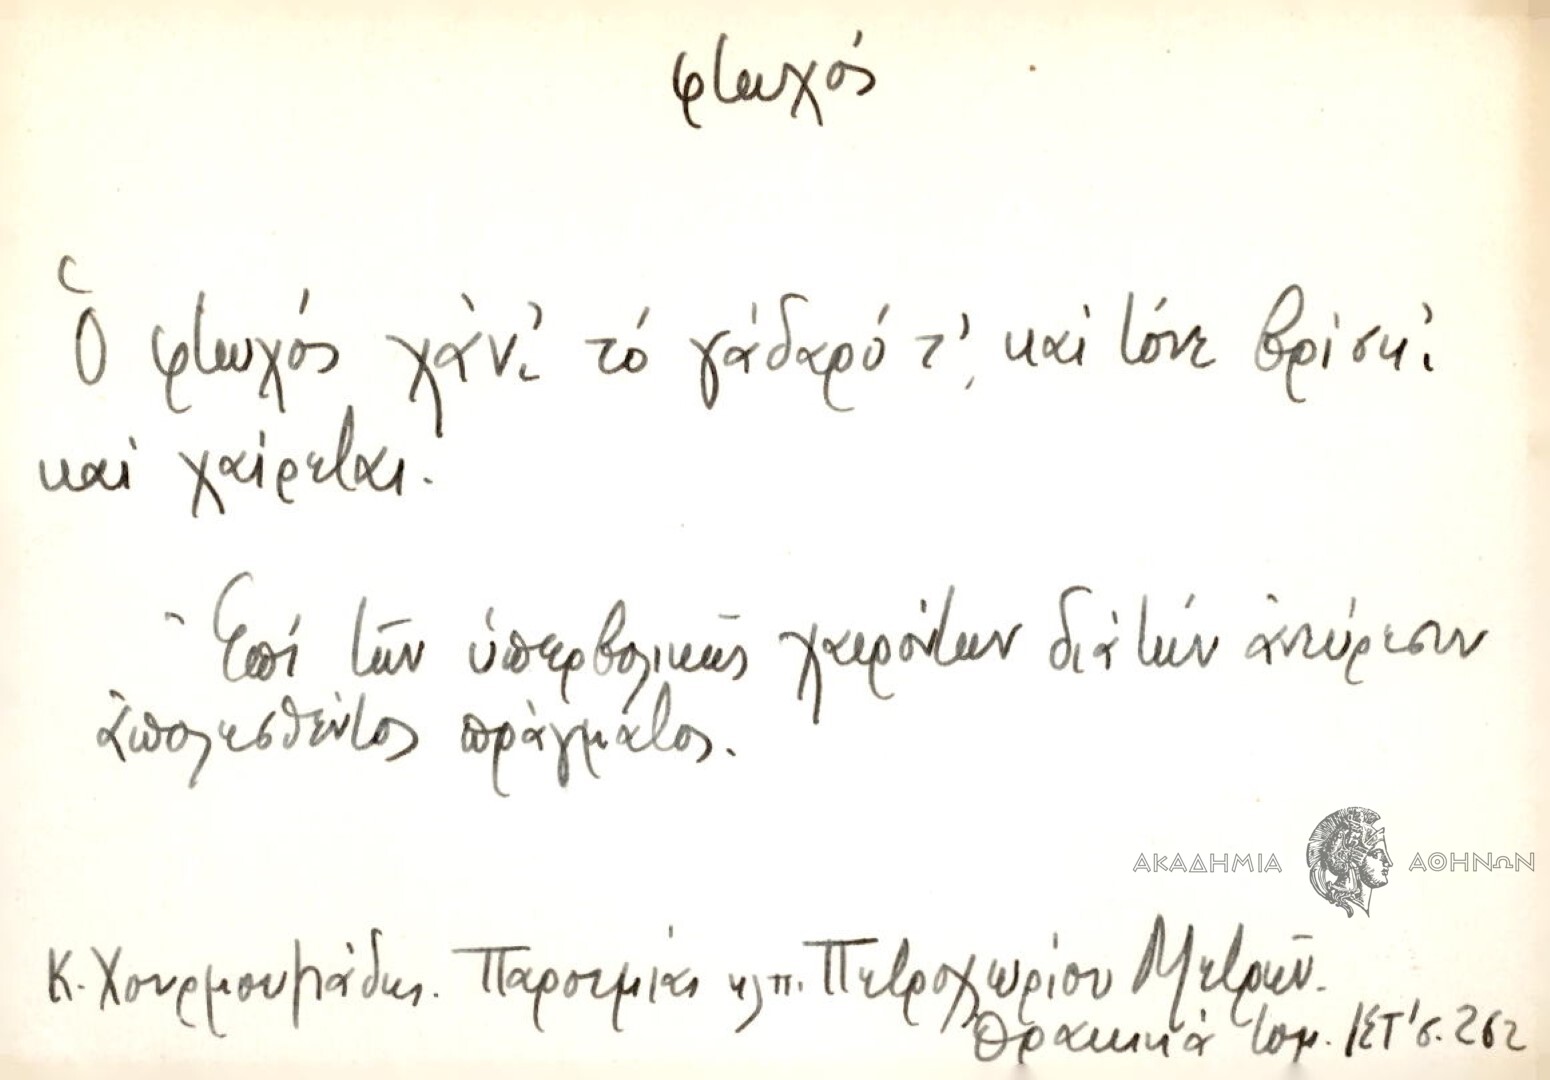 φτωχός
Ὁ φτωχός χάν' τό γάδαρό τ', καί τόνε βρίσκ'
καί χαίρεται.
Ἐπί τῶν ὑπερβολικῶς χαιρόντων διά τήν ἀνεύρεσιν
ἀπολεσθέντος πράγματος.
ΑΚΑΔΗΜΙΑ ΑΘΗΝΩΝ
Κ. Χουρμουζιάδης. Παροιμίαι κλπ. Πετροχωρίου Μετρῶν.
Θρακικά τομ. ΙΣΤ' σ. 262